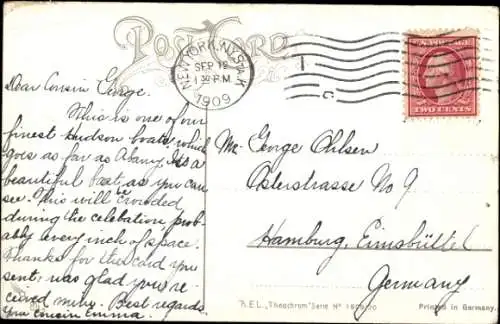 Post Card
NEW YORK, N.Y. STA. K
SEP 19
1 30 P.M.
1909
TWO CENTS 2
Dear Cousin George.
This is one of our
finest Hudson boats which
goes as far as Abany. Its a
beautiful boat as you can
see. This will be crowded
during the celebation, prob-
ably every inch of space.
Thanks for the card you
sent, was glad you re-
ceived mine. Best regards
you cousin Emma.
Mr. George Ohlsen
Osterstrasse No 9
Hamburg Eimsbüttel
Germany
"Theochrom" Serie Nº
Printed in Germany.